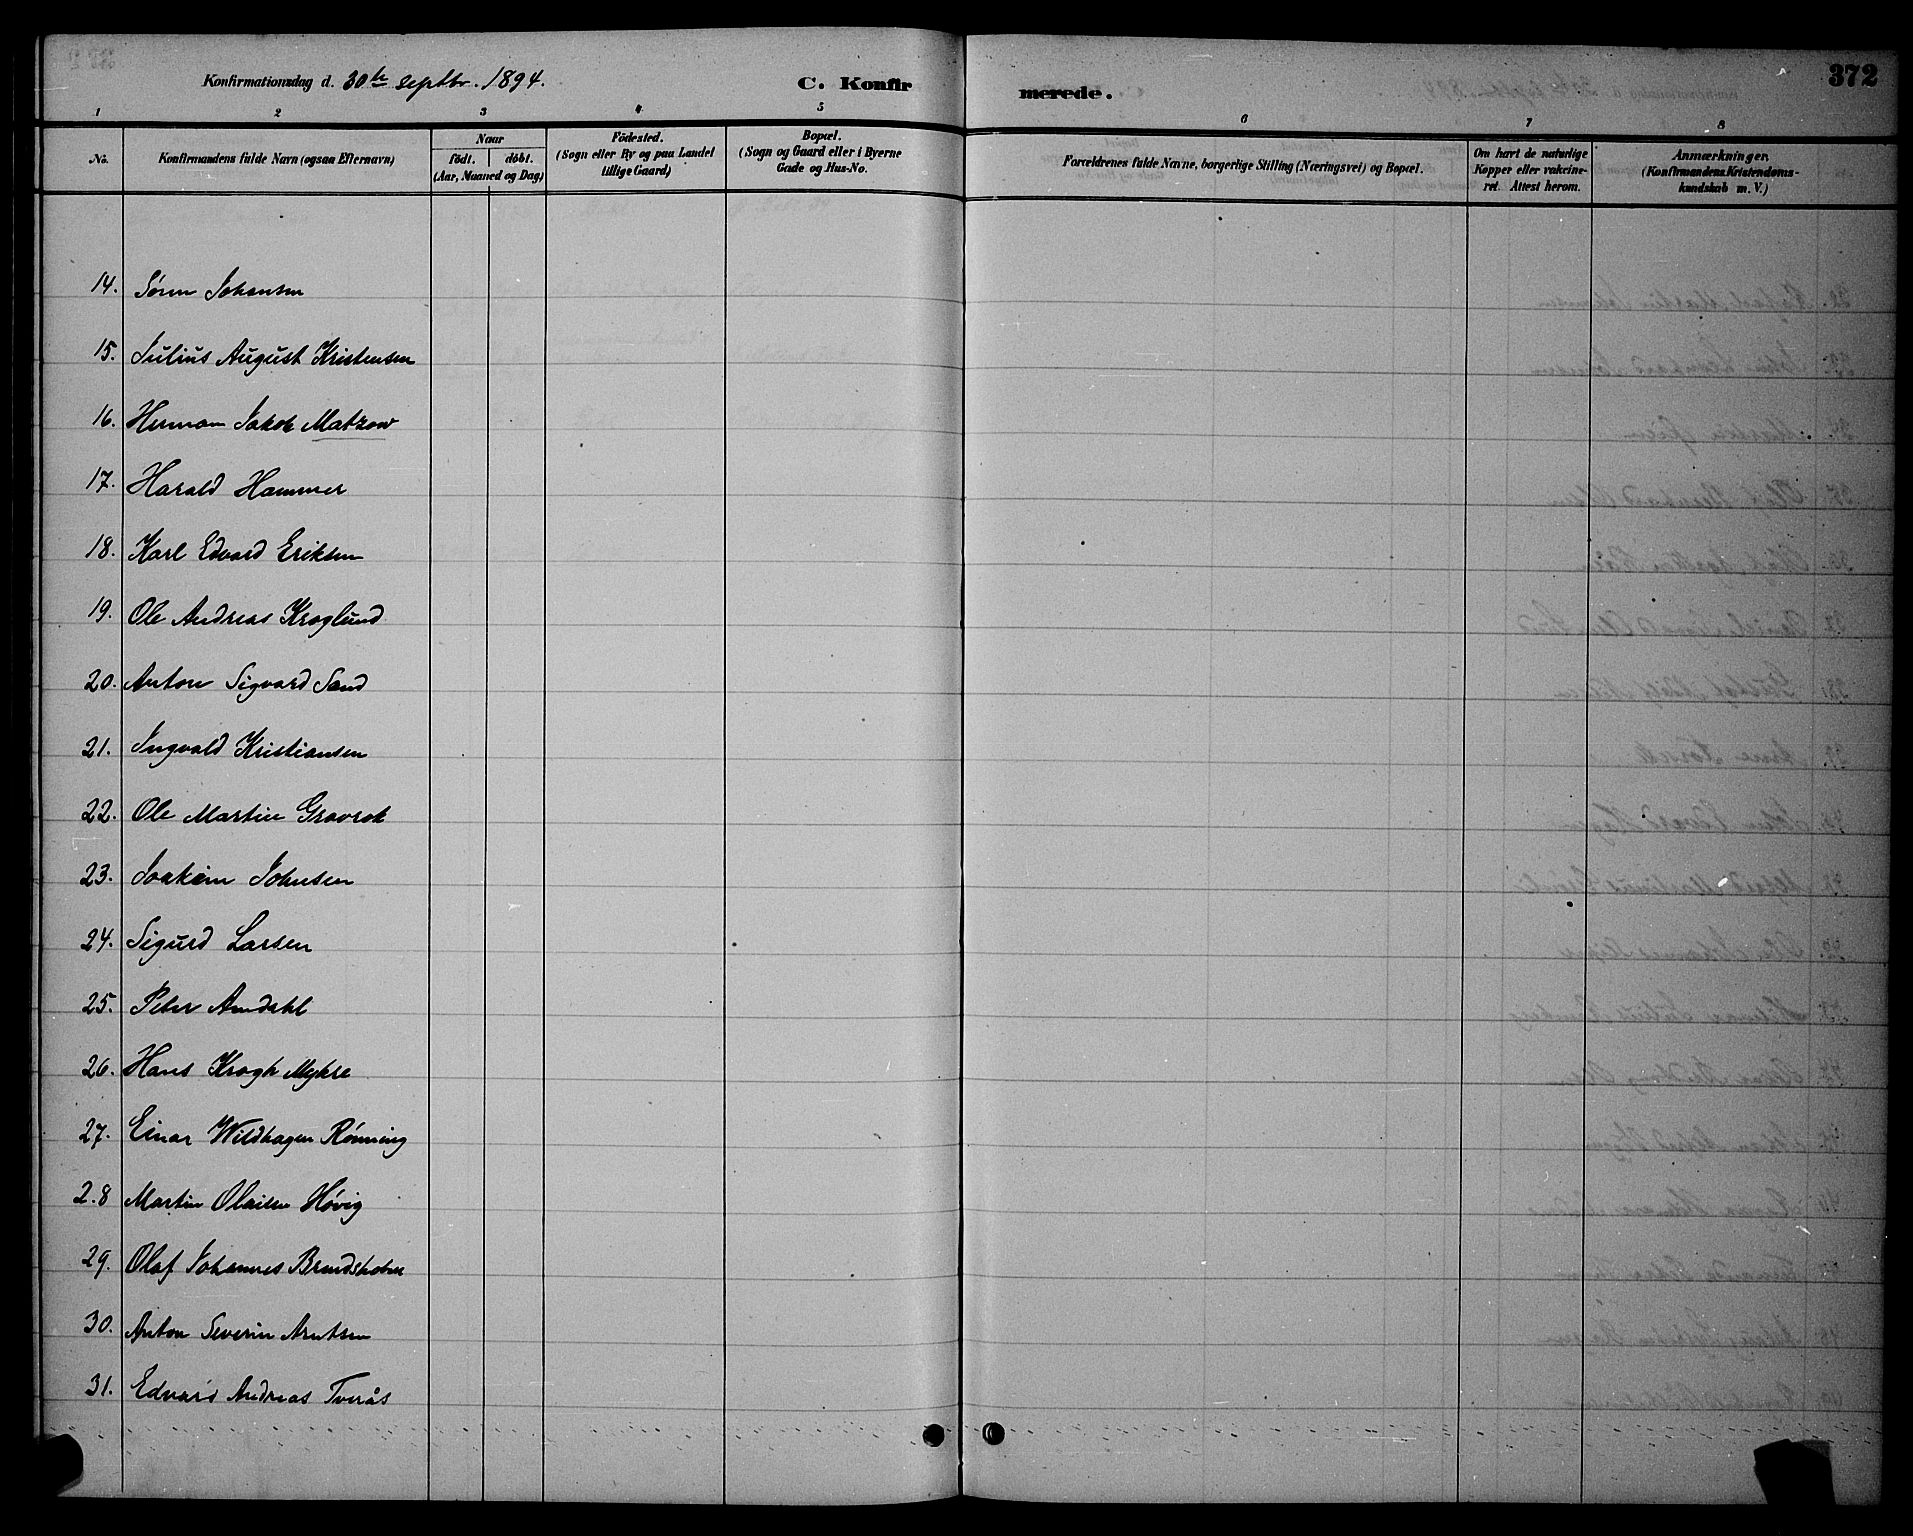 Konfirmationsdag d. 30te septbr. 1894.
C. Konfirmerede.
372
1 2 3 4 5 6 7 8
No.
Konfirmandens fulde Navn (ogsaa Efternavn)
Naar
födt. döbt.
(Aar, Maaned og Dag)
Födested.
(Sogn eller By og paa Landet
tillige Gaard)
Bopæl.
(Sogn og Gaard eller i Byerne
Gade og Hus-No.
Forældrenes fulde Navne, borgerlige Stilling (Næringsvei) og Bopæl.
Om havt de naturlige
Kopper eller vakcine-
ret. Attest herom.
Anmærkninger.
(Konfirmandens Kristendoms-
kundskab m. V.)
14. Sören Johansen
15. Julius August Kristensen
16. Herman Jakob Matzow
17. Harald Hammer
18. Karl Edvard Eriksen
19. Ole Andreas Kroglund
20. Anton Sigvard Sand
21. Ingvald Kristiansen
22. Ole Martin Gravrok
23. Joakim Johnsen
24. Sigurd Larsen
25. Peter Amdahl
26. Hans Krogh Myhre
27. Einar Wildhagen Rönning
28 Martin Olaisen Høvig
29. Olaf Johannes
30. Anton Severin Arntsen
31. Edvard Andreas Tverås